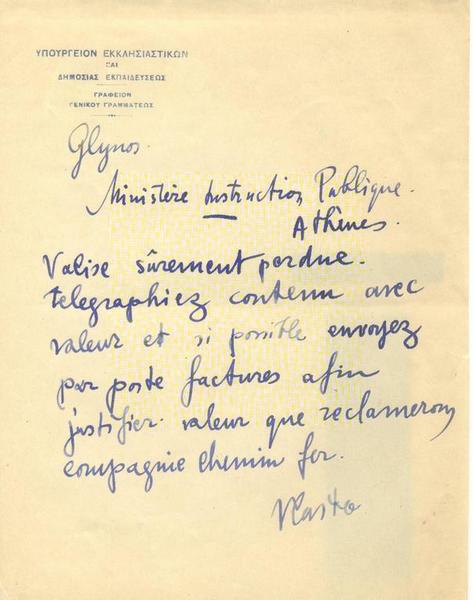 ΥΠΟΥΡΓΕΙΟΝ ΕΚΚΛΗΣΙΑΣΤΙΚΩΝ
ΚΑΙ
ΔΗΜΟΣΙΑΣ ΕΚΠΑΙΔΕΥΣΕΩΣ
ΓΡΑΦΕΙΟΝ
ΓΕΝΙΚΟΥ ΓΡΑΜΜΑΤΕΩΣ
Glynos.
Ministère Instruction Publique.
Athènes.
Valise sûrement perdue.
telegraphiez contenu avec
valeur et si possible envoyez
par poste factures afin
justifier valeur que reclamerons
compagnie chemin fer.
Vlasto